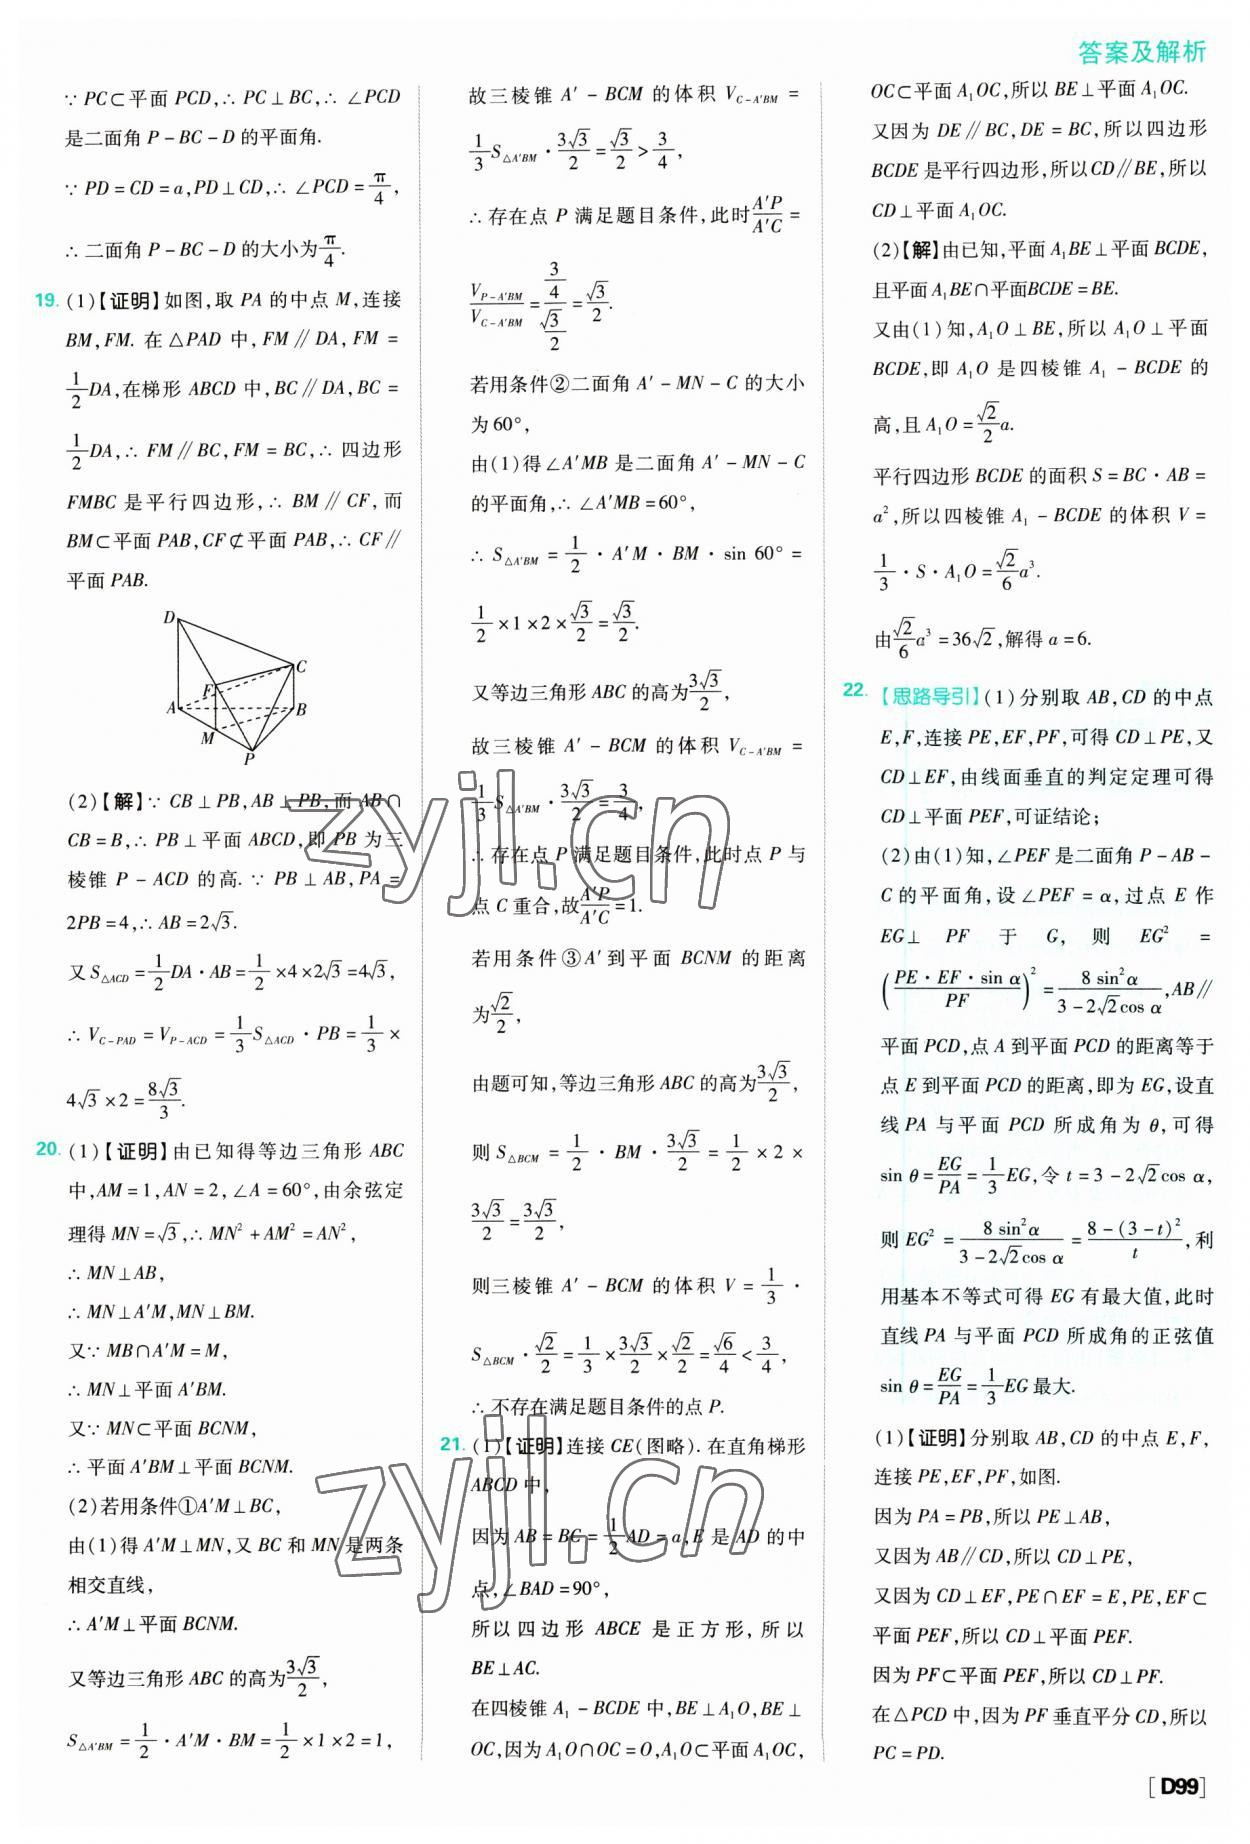 答案及解析
∵ PC⊂平面 PCD,∴ PC⊥BC,∴ ∠PCD
是二面角 P－BC－D 的平面角.
∵ PD=CD=a,PD⊥CD,∴ ∠PCD=π/4,
∴ 二面角 P－BC－D 的大小为π/4.
19. (1)【证明】如图,取 PA 的中点 M,连接
BM,FM. 在△PAD 中,FM∥DA,FM=
1/2 DA,在梯形 ABCD 中,BC∥DA,BC=
1/2 DA,∴ FM∥BC,FM=BC,∴ 四边形
FMBC 是平行四边形,∴ BM∥CF,而
BM⊂平面 PAB,CF⊄平面 PAB,∴ CF∥
平面 PAB.
D
C
F
A
B
M
P
(2)【解】∵ CB⊥PB,AB⊥PB,而 AB∩
CB=B,∴ PB⊥平面 ABCD,即 PB 为三
棱锥 P－ACD 的高. ∵ PB⊥AB,PA=
2PB=4,∴ AB=2√3.
又 S△ACD=1/2 DA·AB=1/2×4×2√3=4√3,
∴ V_{C-PAD}=V_{P-ACD}=1/3 S△ACD·PB=1/3×
4√3×2=8√3/3.
20. (1)【证明】由已知得等边三角形 ABC
中,AM=1,AN=2,∠A=60°,由余弦定
理得 MN=√3,∴ MN²+AM²=AN²,
∴ MN⊥AB,
∴ MN⊥A′M,MN⊥BM.
又∵ MB∩A′M=M,
∴ MN⊥平面 A′BM.
又∵ MN⊂平面 BCNM,
∴ 平面 A′BM⊥平面 BCNM.
(2)若用条件①A′M⊥BC,
由(1)得 A′M⊥MN,又 BC 和 MN 是两条
相交直线,
∴ A′M⊥平面 BCNM.
又等边三角形 ABC 的高为3√3/2,
S△A′BM=1/2·A′M·BM=1/2×1×2=1,
故三棱锥 A′－BCM 的体积 V_{C-A′BM}=
1/3 S△A′BM·3√3/2=√3/2>3/4,
∴ 存在点 P 满足题目条件,此时A′P/A′C=
V_{P-A′BM}/V_{C-A′BM}=(3/4)/(√3/2)=√3/2.
若用条件②二面角 A′－MN－C 的大小
为 60°,
由(1)得∠A′MB 是二面角 A′－MN－C
的平面角,∴ ∠A′MB=60°,
∴ S△A′BM=1/2·A′M·BM·sin 60°=
1/2×1×2×√3/2=√3/2.
又等边三角形 ABC 的高为3√3/2,
故三棱锥 A′－BCM 的体积 V_{C-A′BM}=
1/3 S△A′BM·3√3/2=3/4,
∴ 存在点 P 满足题目条件,此时点 P 与
点 C 重合,故A′P/A′C=1.
若用条件③A′到平面 BCNM 的距离
为√2/2,
由题可知,等边三角形 ABC 的高为3√3/2,
则 S△BCM=1/2·BM·3√3/2=1/2×2×
3√3/2=3√3/2,
则三棱锥 A′－BCM 的体积 V=1/3·
S△BCM·√2/2=1/3×3√3/2×√2/2=√6/4<3/4,
∴ 不存在满足题目条件的点 P.
21. (1)【证明】连接 CE(图略). 在直角梯形
ABCD 中,
因为 AB=BC=1/2 AD=a,E 是 AD 的中
点,∠BAD=90°,
所以四边形 ABCE 是正方形,所以
BE⊥AC.
在四棱锥 A₁－BCDE 中,BE⊥A₁O,BE⊥
OC,因为 A₁O∩OC=O,A₁O⊂平面 A₁OC,
OC⊂平面 A₁OC,所以 BE⊥平面 A₁OC.
又因为 DE∥BC,DE=BC,所以四边形
BCDE 是平行四边形,所以 CD∥BE,所以
CD⊥平面 A₁OC.
(2)【解】由已知,平面 A₁BE⊥平面 BCDE,
且平面 A₁BE∩平面BCDE=BE.
又由(1)知,A₁O⊥BE,所以 A₁O⊥平面
BCDE,即 A₁O 是四棱锥 A₁－BCDE 的
高,且 A₁O=√2/2 a.
平行四边形 BCDE 的面积 S=BC·AB=
a²,所以四棱锥 A₁－BCDE 的体积 V=
1/3·S·A₁O=√2/6 a³.
由√2/6 a³=36√2,解得 a=6.
22. 【思路导引】(1)分别取 AB,CD 的中点
E,F,连接 PE,EF,PF,可得 CD⊥PE,又
CD⊥EF,由线面垂直的判定定理可得
CD⊥平面 PEF,可证结论;
(2)由(1)知,∠PEF 是二面角 P－AB－
C 的平面角,设∠PEF=α,过点 E 作
EG⊥PF 于 G,则 EG²=
(PE·EF·sin α/PF)²=8 sin²α/(3－2√2cos α),AB∥
平面 PCD,点 A 到平面 PCD 的距离等于
点 E 到平面 PCD 的距离,即为 EG,设直
线 PA 与平面 PCD 所成角为 θ,可得
sin θ=EG/PA=1/3 EG,令 t=3－2√2cos α,
则 EG²=8 sin²α/(3－2√2cos α)=(8－(3－t)²)/t,利
用基本不等式可得 EG 有最大值,此时
直线 PA 与平面 PCD 所成角的正弦值
sin θ=EG/PA=1/3 EG 最大.
(1)【证明】分别取 AB,CD 的中点 E,F,
连接 PE,EF,PF,如图.
因为 PA=PB,所以 PE⊥AB,
又因为 AB∥CD,所以 CD⊥PE,
又因为 CD⊥EF,PE∩EF=E,PE,EF⊂
平面 PEF,所以 CD⊥平面 PEF.
因为 PF⊂平面 PEF,所以 CD⊥PF.
在△PCD 中,因为 PF 垂直平分 CD,所以
PC=PD.
zyjl.cn
zyjl.cn
[D99]